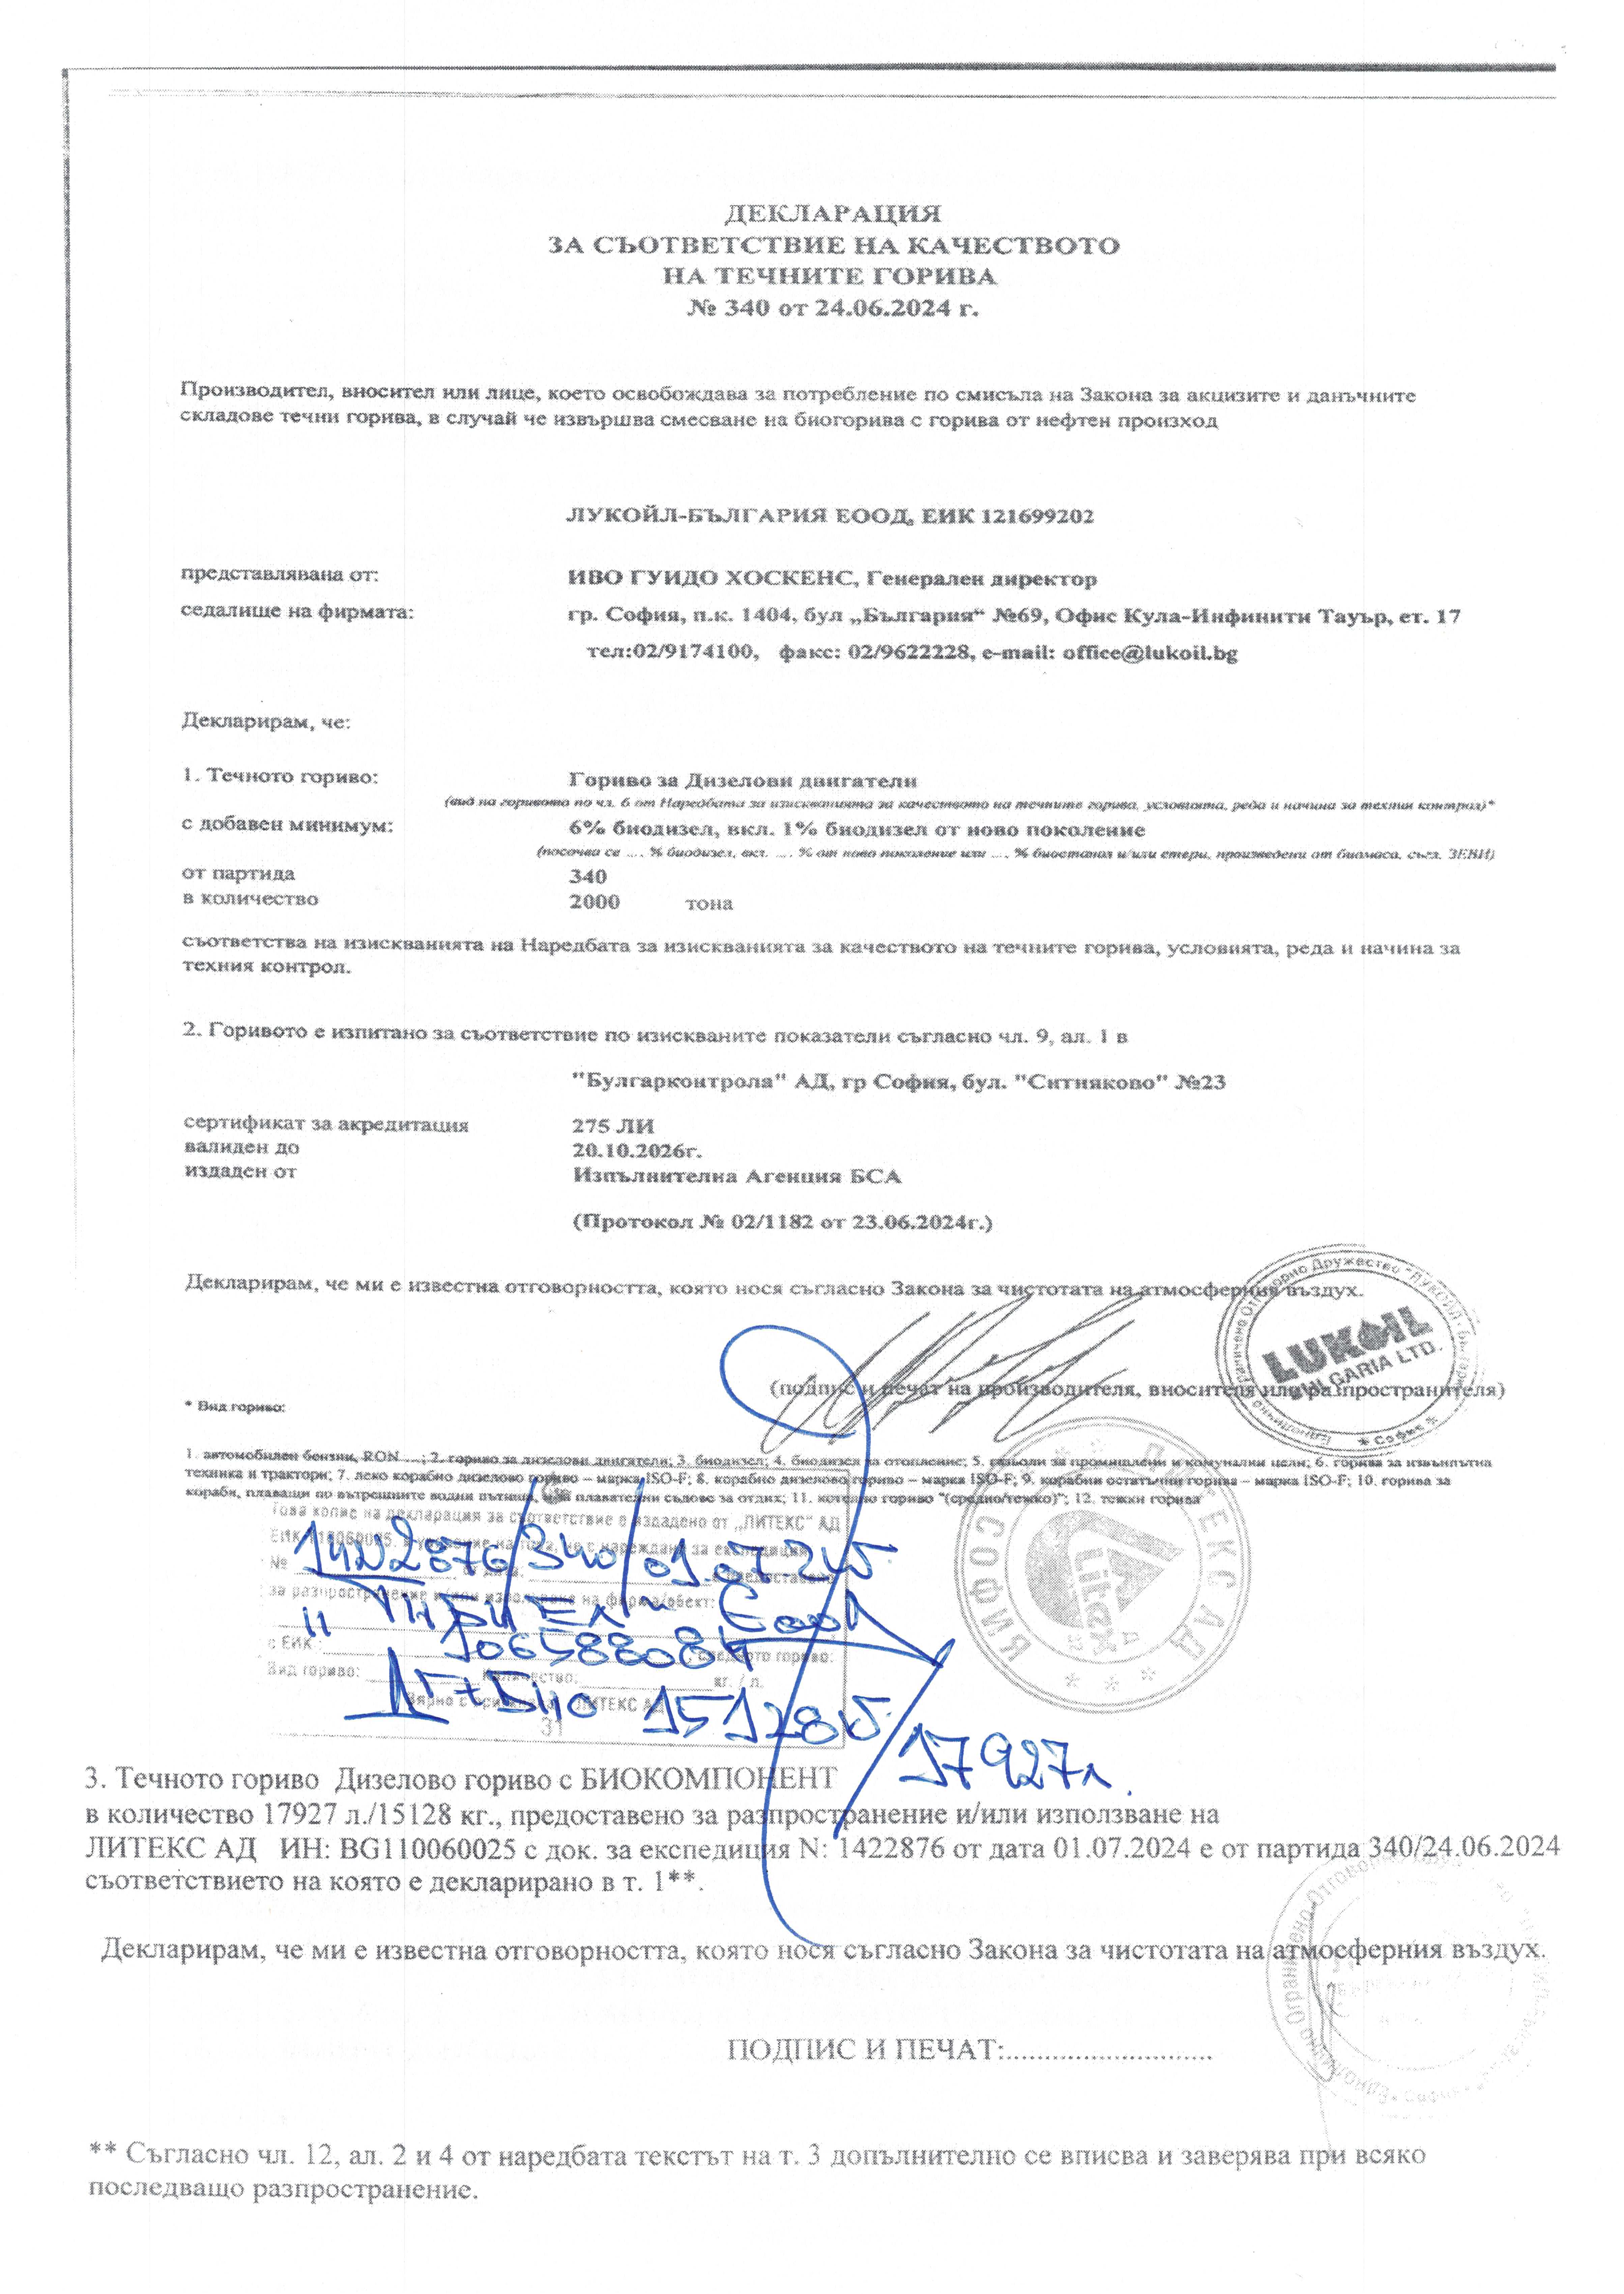 ДЕКЛАРАЦИЯ
ЗА СЪОТВЕТСТВИЕ НА КАЧЕСТВОТО
НА ТЕЧНИТЕ ГОРИВА
№ 340 от 24.06.2024 г.
Производител, вносител или лице, което освобождава за потребление по смисъла на Закона за акцизите и данъчните
складове течни горива, в случай че извършва смесване на биогорива с горива от нефтен произход
ЛУКОЙЛ-БЪЛГАРИЯ ЕООД, ЕИК 121699202
представлявана от: ИВО ГУИДО ХОСКЕНС, Генерален директор
седалище на фирмата: гр. София, п.к. 1404, бул „България“ №69, Офис Кула-Инфинити Тауър, ет. 17
тел:02/9174100, факс: 02/9622228, e-mail: office@lukoil.bg
Декларирам, че:
1. Течното гориво: Гориво за Дизелови двигатели
(вид на горивото по чл. 6 от Наредбата за изискванията за качеството на течните горива, условията, реда и начина за техния контрол)*
с добавен минимум: 6% биодизел, вкл. 1% биодизел от ново поколение
(посочва се .... % биодизел, вкл. .... % от ново поколение или .... % биоетанол и/или етери, произведени от биомаса, съгл. ЗЕВИ)
от партида 340
в количество 2000 тона
съответства на изискванията на Наредбата за изискванията за качеството на течните горива, условията, реда и начина за
техния контрол.
2. Горивото е изпитано за съответствие по изискваните показатели съгласно чл. 9, ал. 1 в
"Булгарконтрола" АД, гр София, бул. "Ситняково" №23
сертификат за акредитация 275 ЛИ
валиден до 20.10.2026г.
издаден от Изпълнителна Агенция БСА
(Протокол № 02/1182 от 23.06.2024г.)
Декларирам, че ми е известна отговорността, която нося съгласно Закона за чистотата на атмосферния въздух.
LUKOIL
BULGARIA LTD.
София
(подпис и печат на производителя, вносителя или разпространителя)
* Вид гориво:
1. автомобилен бензин, RON ...; 2. гориво за дизелови двигатели; 3. биодизел; 4. биодизел за отопление; 5. газьоли за промишлени и комунални цели; 6. горива за извънпътна
техника и трактори; 7. леко корабно дизелово гориво – марка ISO-F; 8. корабно дизелово гориво – марка ISO-F; 9. корабни остатъчни горива – марка ISO-F; 10. горива за
кораби, плаващи по вътрешните водни пътища, или плавателни съдове за отдих; 11. котелно гориво "(средно/тежко)"; 12. тежки горива
Това копие на декларация за съответствие е издадено от „ЛИТЕКС“ АД
1422876/340/01.07.24г.
за разпространение и/или използване на фирма/обект:
ЕООД
с ЕИК: 106588084 гориво:
Вид гориво: ДГ+БИО Количество: кг. / л.
15128кг/17927л.
ЛИТЕКС АД
31
ЛИТЕКС АД
СОФИЯ
Litex
3. Течното гориво Дизелово гориво с БИОКОМПОНЕНТ
в количество 17927 л./15128 кг., предоставено за разпространение и/или използване на
ЛИТЕКС АД ИН: BG110060025 с док. за експедиция N: 1422876 от дата 01.07.2024 е от партида 340/24.06.2024
съответствието на която е декларирано в т. 1**.
Декларирам, че ми е известна отговорността, която нося съгласно Закона за чистотата на атмосферния въздух.
ПОДПИС И ПЕЧАТ:...........................
** Съгласно чл. 12, ал. 2 и 4 от наредбата текстът на т. 3 допълнително се вписва и заверява при всяко
последващо разпространение.